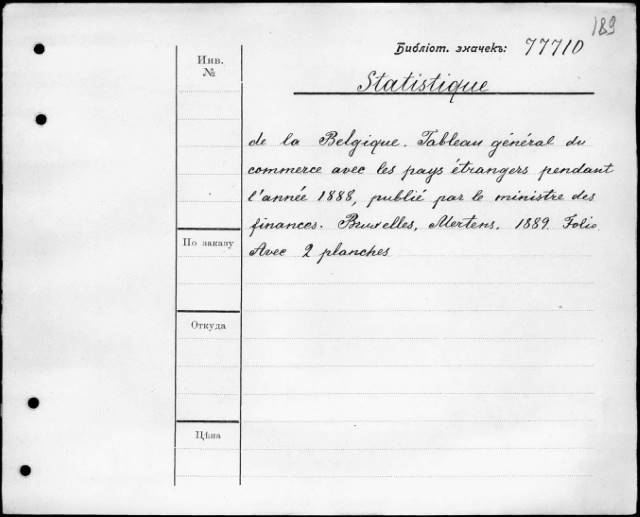 189
Библіот. значекъ: 77710
Инв.
№
Statistique
de la Belgique. Tableau général du
commerce avec les pays étrangers pendant
l'année 1888, publié par le ministre des
finances. Bruxelles, Mertens, 1889. Folio.
По заказу
Avec 2 planches
Откуда
Цѣна